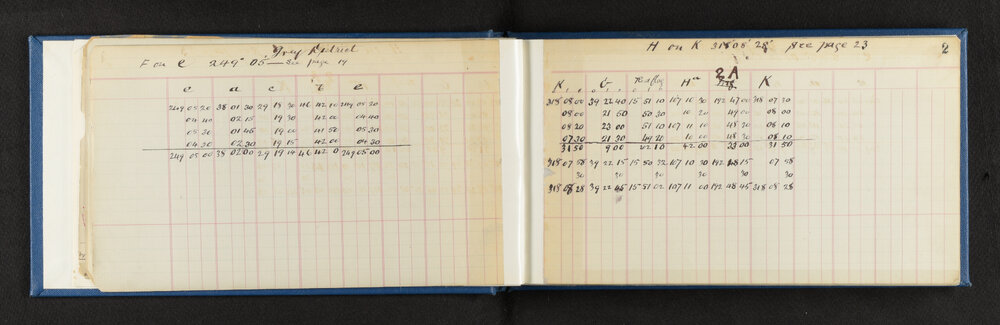 Grey District
F on C 249° 05' — See page 14
e a c b e
249 05 20 38 01 30 29 18 30 46 42 10 249 05 20
04 40 02 15 19 30 42 00 04 40
05 30 01 45 19 00 41 50 05 30
04 30 02 30 19 15 42 00 04 30
249 05 00 38 02 00 29 19 14 46 42 0 249 05 00
H on K 318° 08' 28" See page 23
2
2A
K G Red flag H K
318 08 00 39 22 40 15 51 10 107 10 30 192 47 00 318 07 30
08 00 21 50 50 30 10 20 49 00 08 00
08 20 23 00 51 10 107 11 10 48 30 08 10
07 30 21 30 49 20 10 00 48 30 08 10
31 50 9 00 02 10 42 00 33 00 31 50
318 07 58 39 22 15 15 50 32 107 10 30 192 48 15 07 58
30 30 30 30 30 30
318 08 28 39 22 45 15 51 02 107 11 00 192 48 45 318 08 28